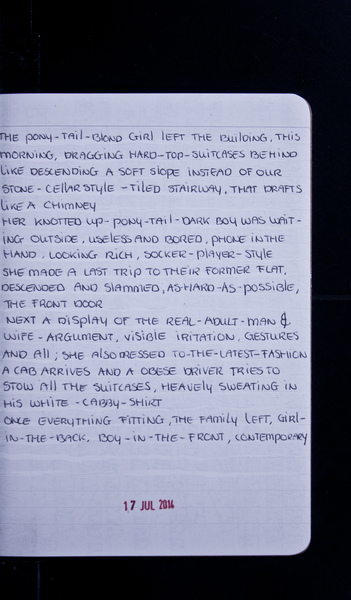 THE PONY-TAIL-BLOND GIRL LEFT THE BUILDING, THIS
MORNING, DRAGGING HARD-TOP-SUITCASES BEHIND
LIKE DESCENDING A SOFT SLOPE INSTEAD OF OUR
STONE-CELLAR STYLE-TILED STAIRWAY, THAT DRAFTS
LIKE A CHIMNEY
HER KNOTTED UP-PONY-TAIL-DARK BOY WAS WAIT-
ING OUTSIDE, USELESS AND BORED, PHONE IN THE
HAND, LOOKING RICH, SOCKER-PLAYER-STYLE
SHE MADE A LAST TRIP TO THEIR FORMER FLAT,
DESCENDED AND SLAMMED, AS-HARD-AS-POSSIBLE,
THE FRONT DOOR
NEXT A DISPLAY OF THE REAL-ADULT-MAN &
WIFE-ARGUMENT, VISIBLE IRITATION, GESTURES
AND ALL; SHE ALSO DRESSED TO-THE-LATEST-FASHION
A CAB ARRIVES AND A OBESE DRIVER TRIES TO
STOW ALL THE SUITCASES, HEAVELY SWEATING IN
HIS WHITE-CABBY-SHIRT
ONCE EVERYTHING FITTING, THE FAMILY LEFT, GIRL-
IN-THE-BACK, BOY-IN-THE-FRONT, CONTEMPORARY
17 JUL 2014